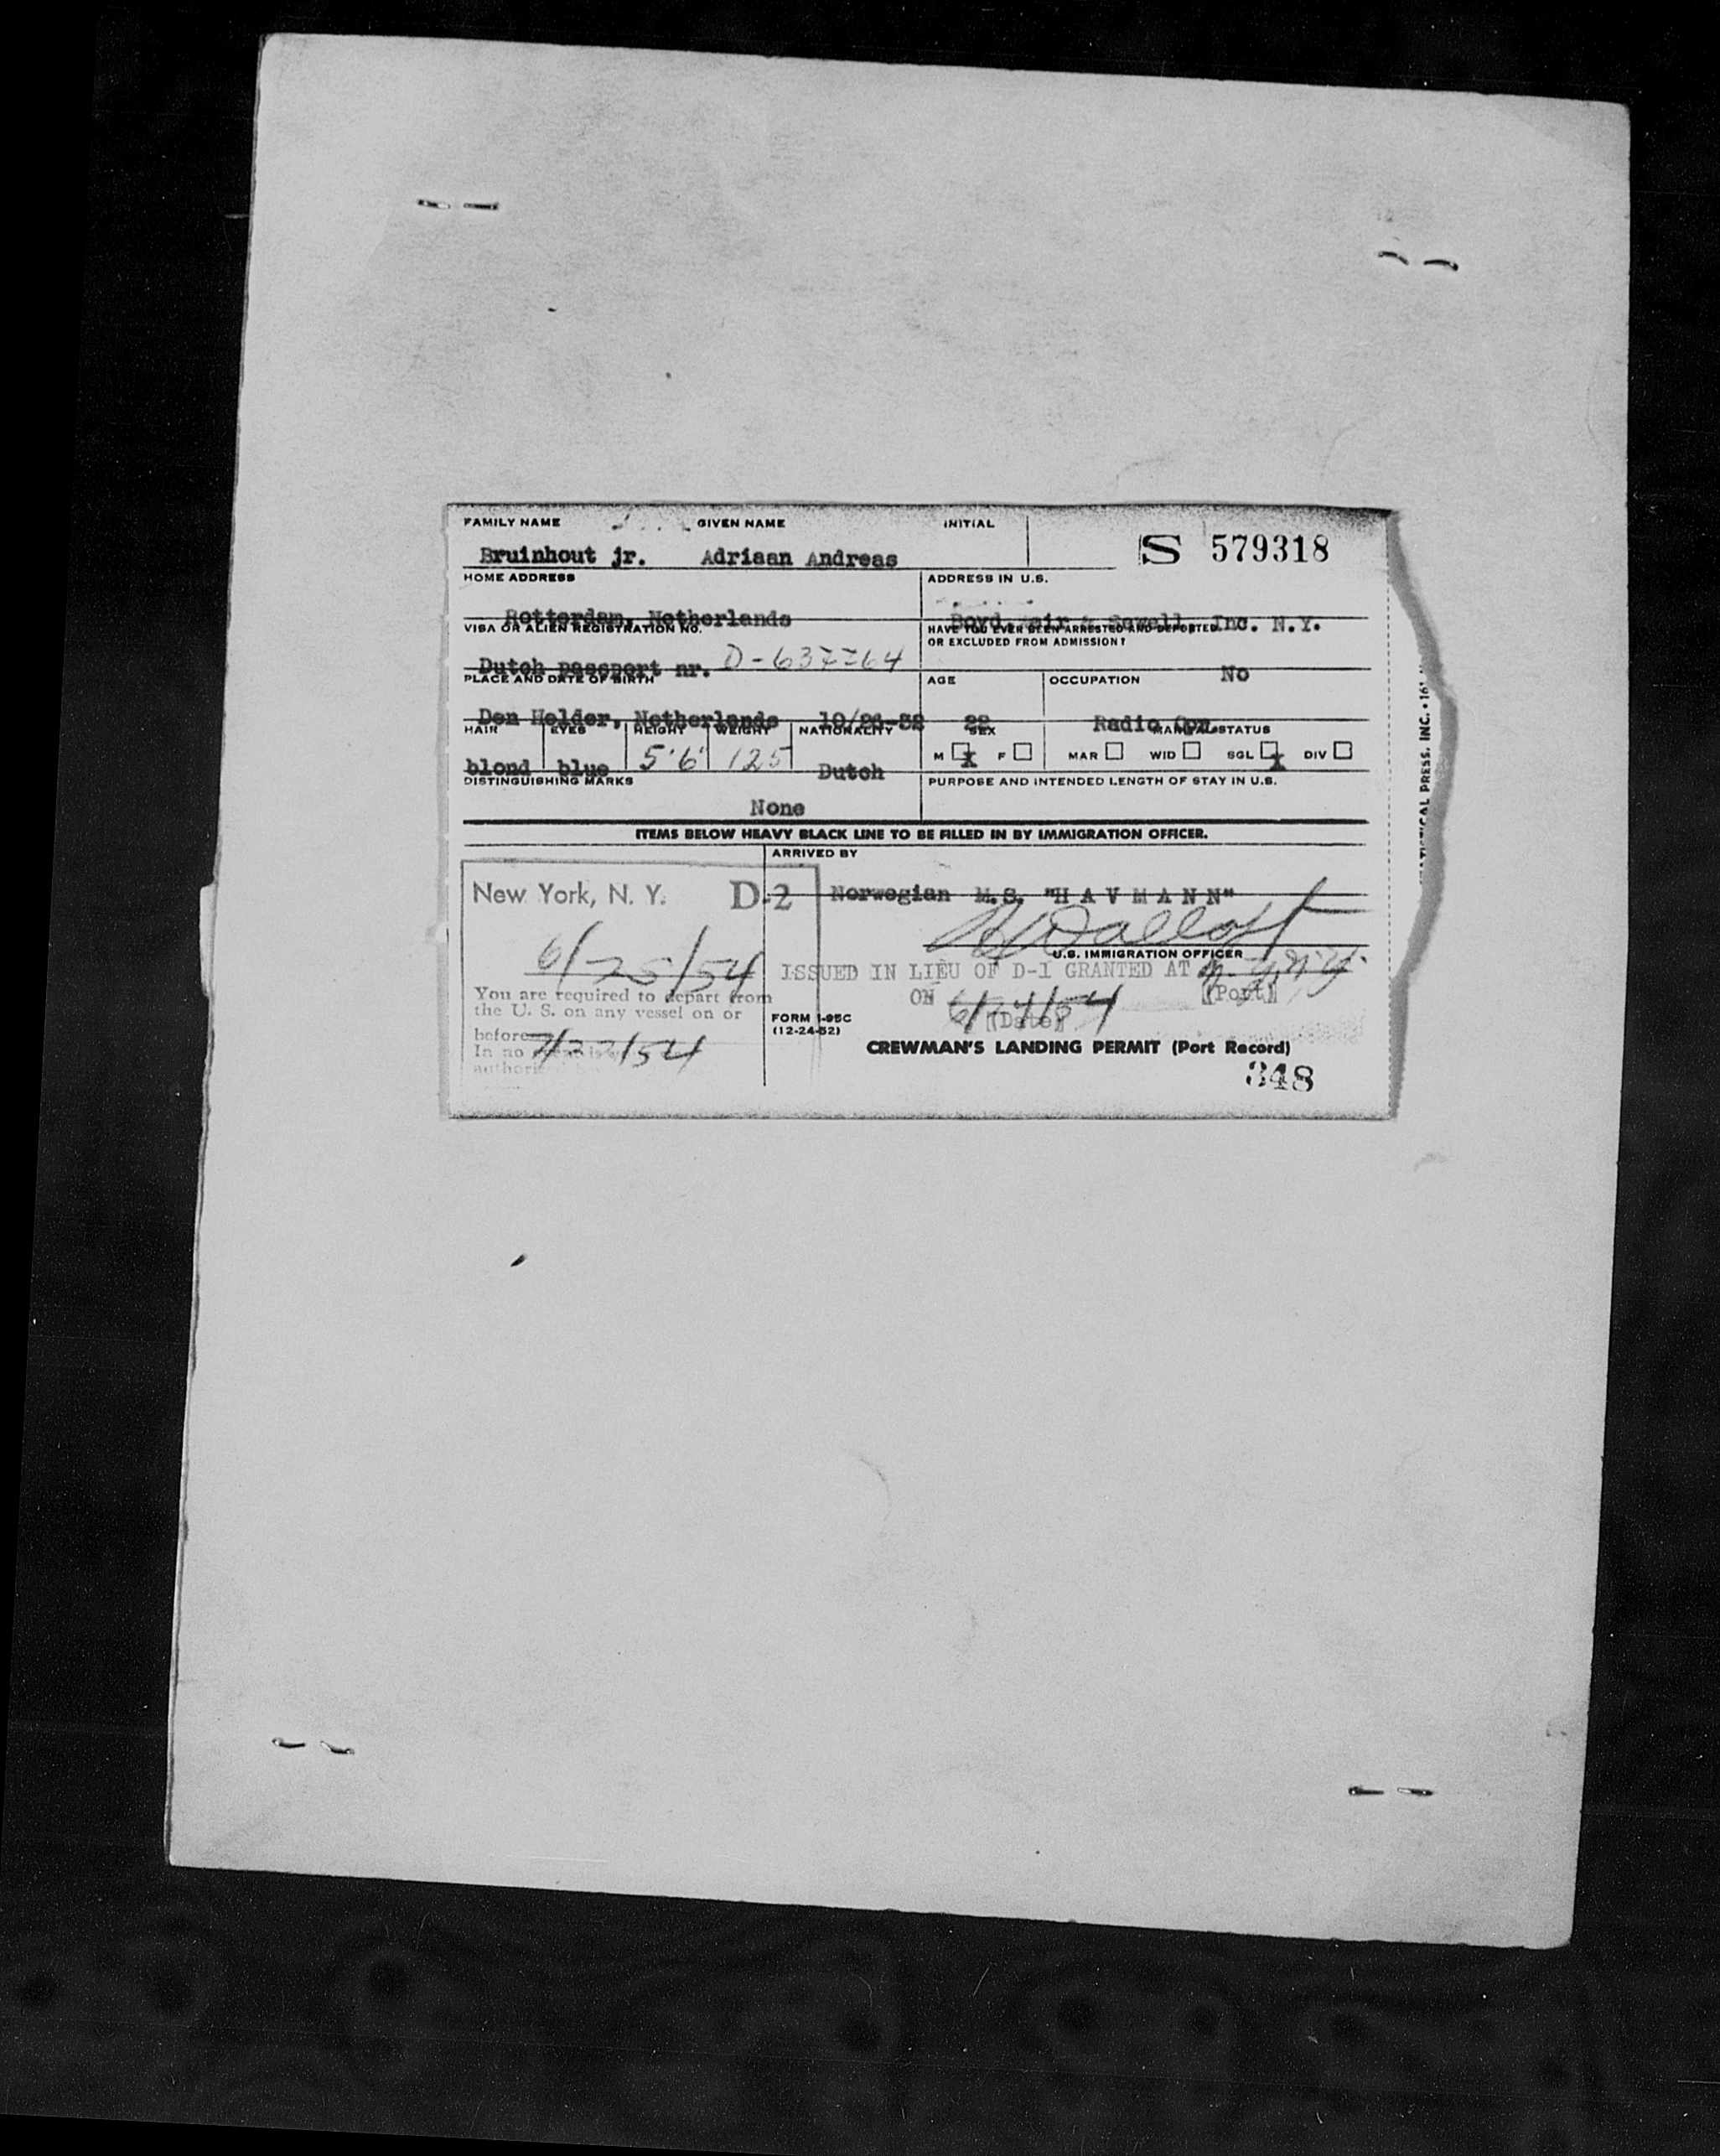 FAMILY NAME GIVEN NAME INITIAL
Bruinhout jr. Adriaan Andreas S 579318
HOME ADDRESS ADDRESS IN U.S.
Rotterdam, Netherlands Boyd, Weir & Sewell, Inc. N.Y.
VISA OR ALIEN REGISTRATION NO. HAVE YOU EVER BEEN ARRESTED AND DEPORTED
OR EXCLUDED FROM ADMISSION?
Dutch passport nr. D-637264 No
PLACE AND DATE OF BIRTH AGE OCCUPATION
Den Helder, Netherlands 10/26-32 22 Radio Opr.
HAIR EYES HEIGHT WEIGHT NATIONALITY SEX MARITAL STATUS
blond blue 5'6" 125 Dutch M X F MAR WID SGL X DIV
DISTINGUISHING MARKS PURPOSE AND INTENDED LENGTH OF STAY IN U.S.
None
ITEMS BELOW HEAVY BLACK LINE TO BE FILLED IN BY IMMIGRATION OFFICER.
ARRIVED BY
New York, N. Y. D-2 Norwegian M.S. "H A V M A N N"
U.S. IMMIGRATION OFFICER
6/25/54 ISSUED IN LIEU OF D-1 GRANTED AT N.Y. N.Y.
You are required to depart from ON (Port)
the U. S. on any vessel on or (Date)
before /54
In no
FORM I-95C
(12-24-52)
CREWMAN'S LANDING PERMIT (Port Record)
348
PRESS. INC. • 161